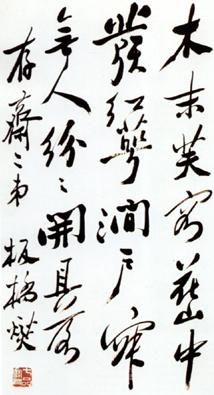 木末芙蓉花山中
發紅萼澗戶寂
無人紛〻開且落
存齋二弟 板橋燮